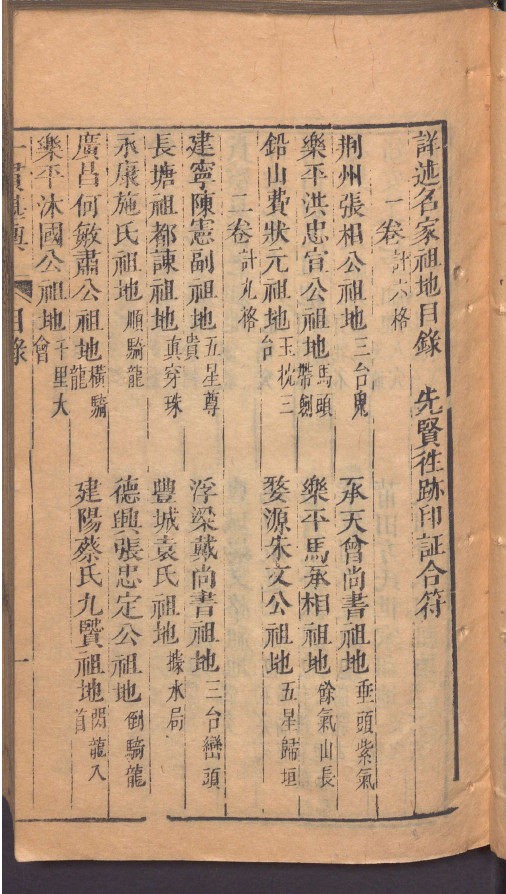 詳述名家祖地目錄　先賢徃跡印証合符
一卷計六格
荆州張相公祖地三台鬼　承天曾尚書祖地垂頭紫氣
樂平洪忠宣公祖地馬頭帶劍　樂平馬丞相祖地餘氣山長
鉛山費狀元祖地玉枕三台　婺源朱文公祖地五星歸垣
二卷計九格
建寧陳憲副祖地五星尊貴　浮梁戴尚書祖地三台巒頭
長塘祖都諫祖地真穿珠　豐城袁氏祖地據水局
永康施氏祖地順騎龍　德興張忠定公祖地倒騎龍
廣昌何敏肅公祖地橫騎龍　建陽蔡氏九賢祖地閃龍入首
樂平沐國公祖地千里大會
目錄　一